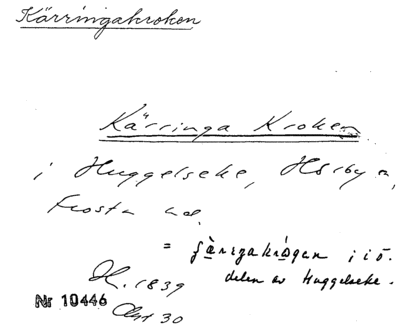 Kärringakroken
Kärringa Kroken
i Huggelseke, Hörby sn,
Frosta hd.
= ɟàrrgakrógen i i ö.
delen av Huggelseke.
H. 1839
Nr 10446
30